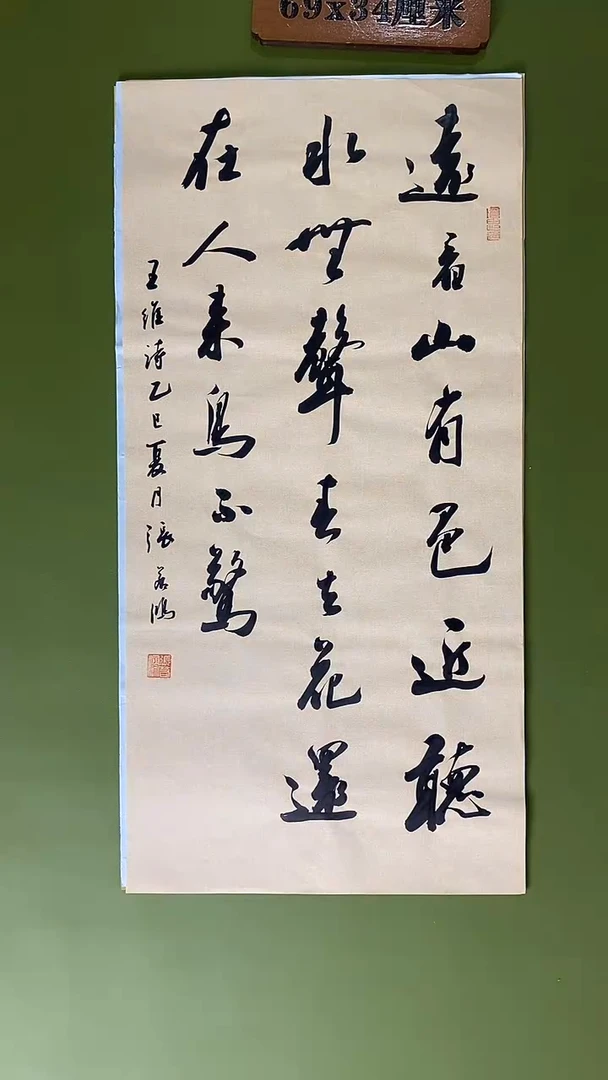 69x34厘米
遠看山有色近聽
水無聲春去花還
在人来鳥不驚
王維詩乙巳夏月張若鴻